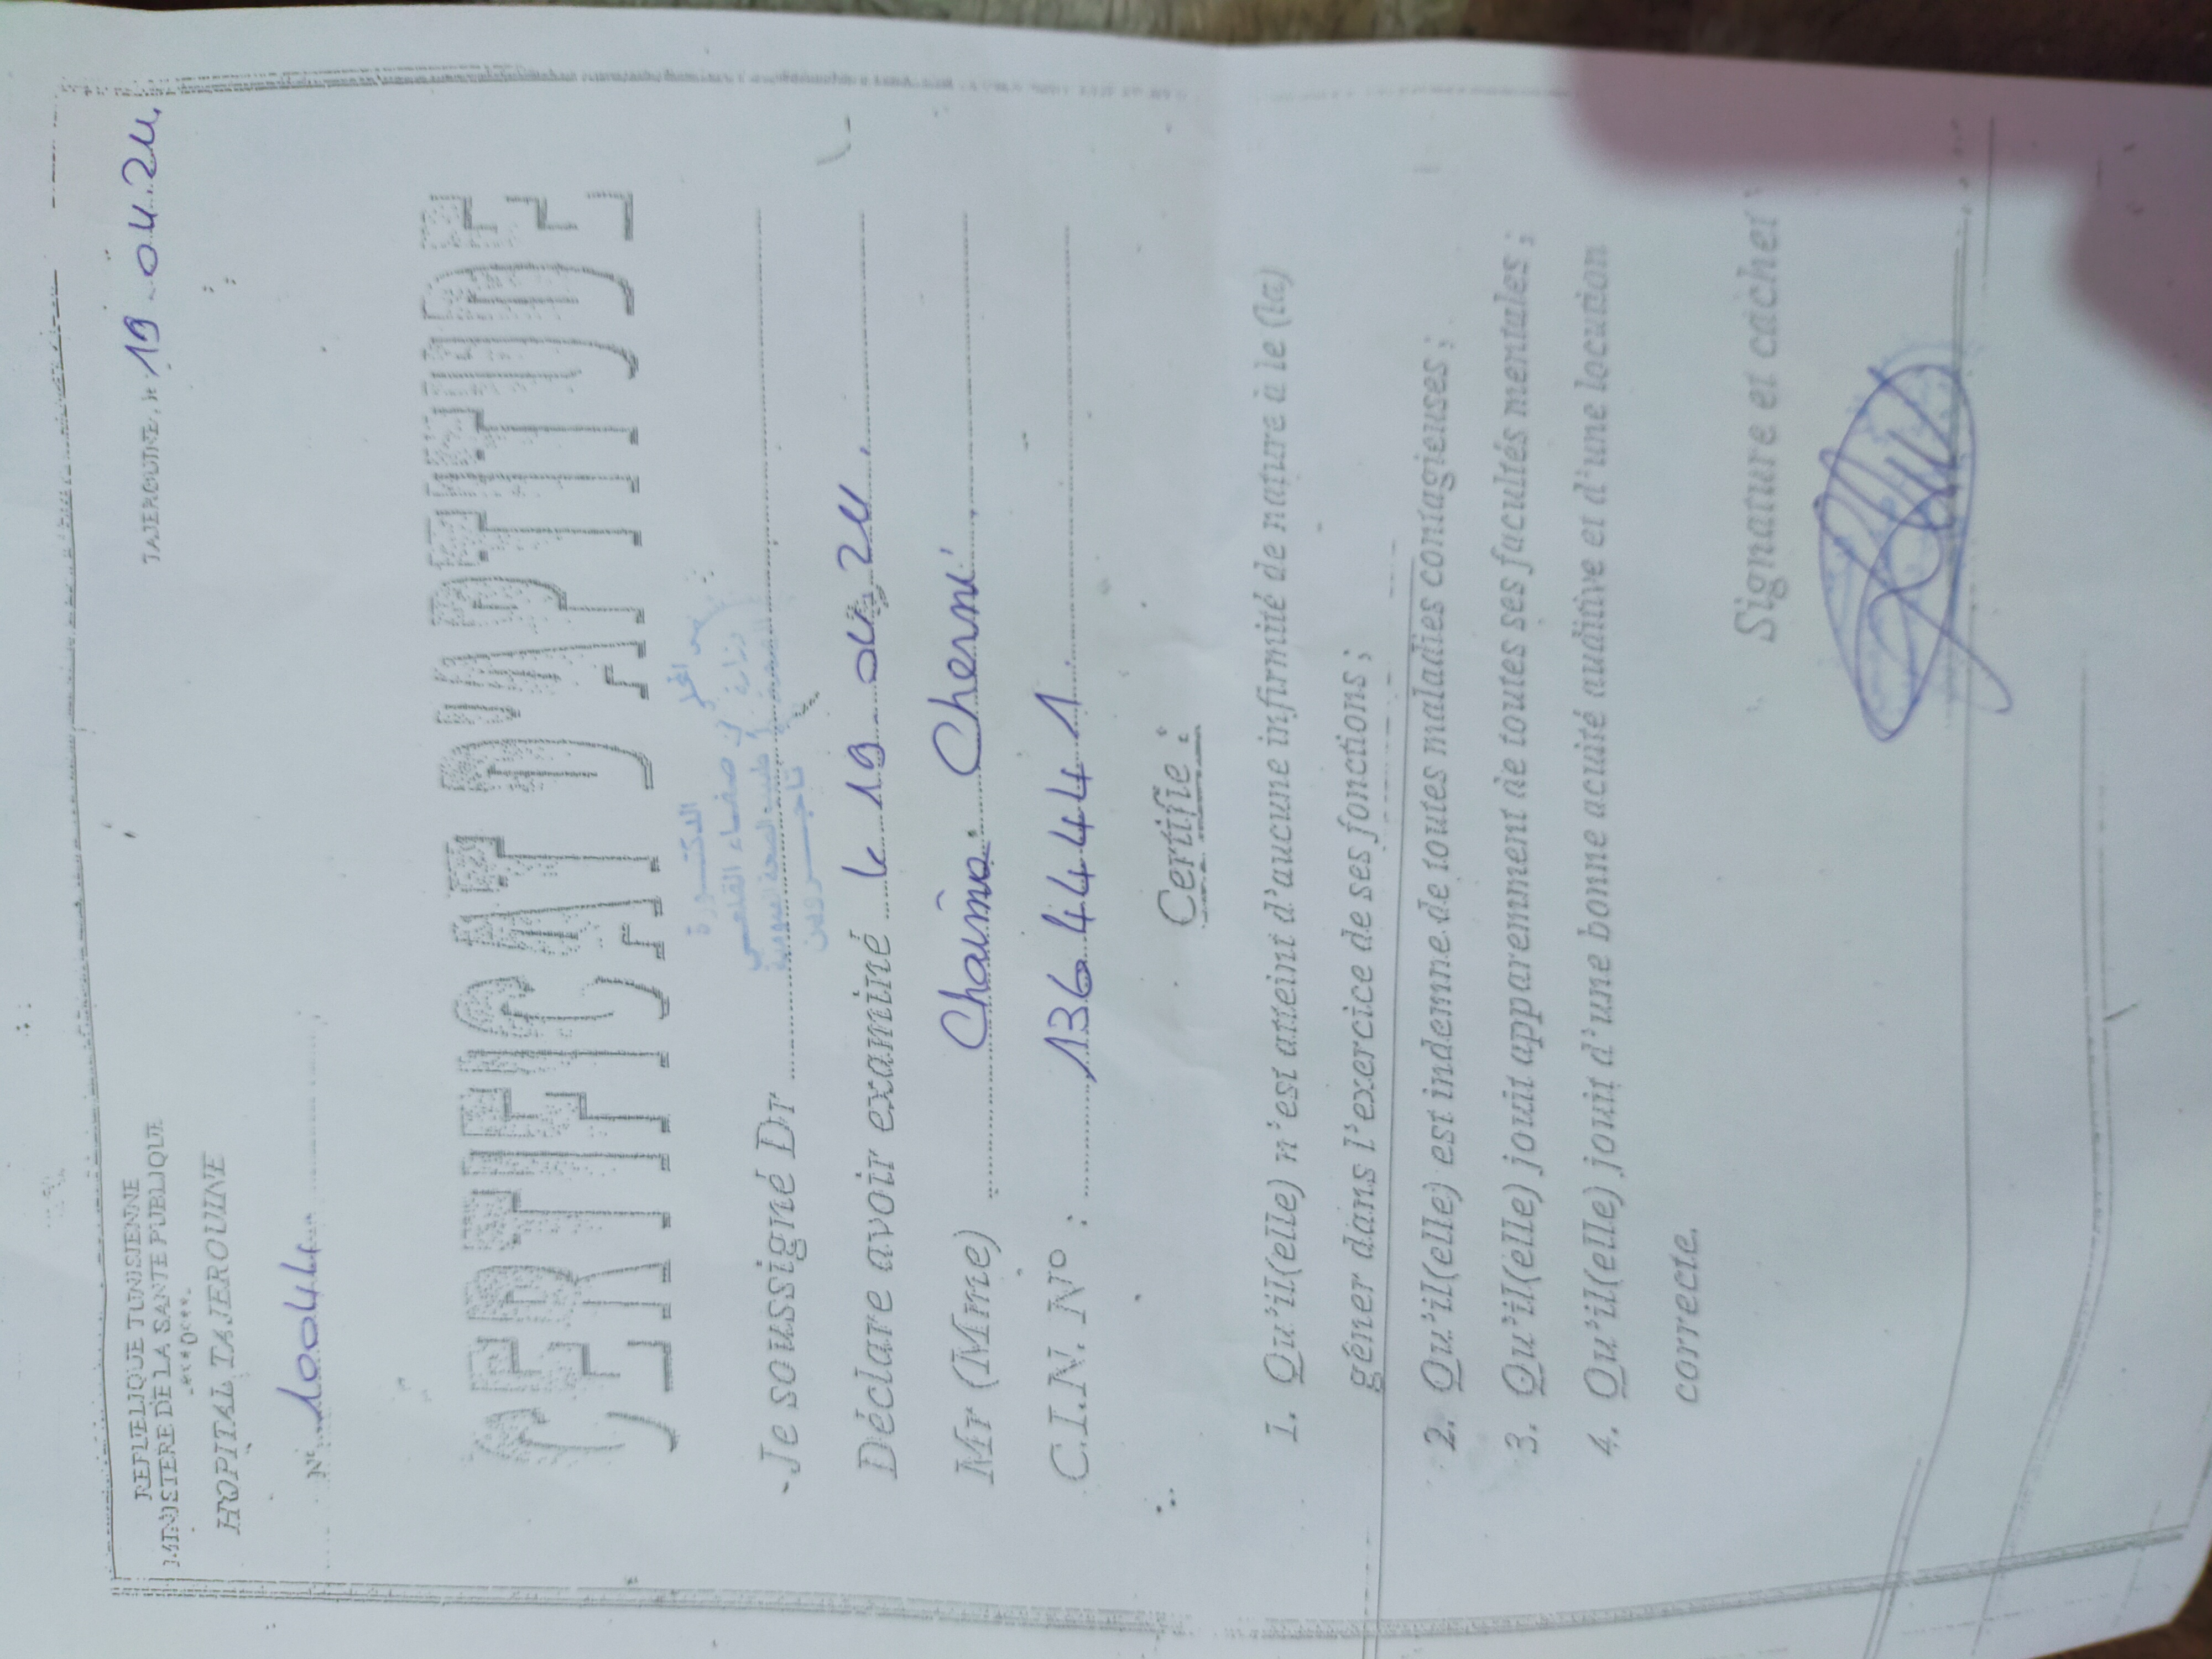 REPUBLIQUE TUNISIENNE
MINISTERE DE LA SANTE PUBLIQUE
HOPITAL TAJEROUINE
TAJEROUINE, le 19.04.24.
N° 10044
CERTIFICAT D'APTITUDE
الدكتورة
صفاء القلعي
طبيب الصحة العمومية
تاجروين
Je soussigné Dr
Déclare avoir examiné le 19 04 24
Mr (Mme) Chaima Cherni
C.I.N. N° : 13644441
Certifie :
1. Qu'il(elle) n'est atteint d'aucune infirmité de nature à le (la)
gêner dans l'exercice de ses fonctions ;
2. Qu'il(elle) est indemne de toutes maladies contagieuses ;
3. Qu'il(elle) jouit apparemment de toutes ses facultés mentales ;
4. Qu'il(elle) jouit d'une bonne acuité auditive et d'une locution
correcte.
Signature et cachet